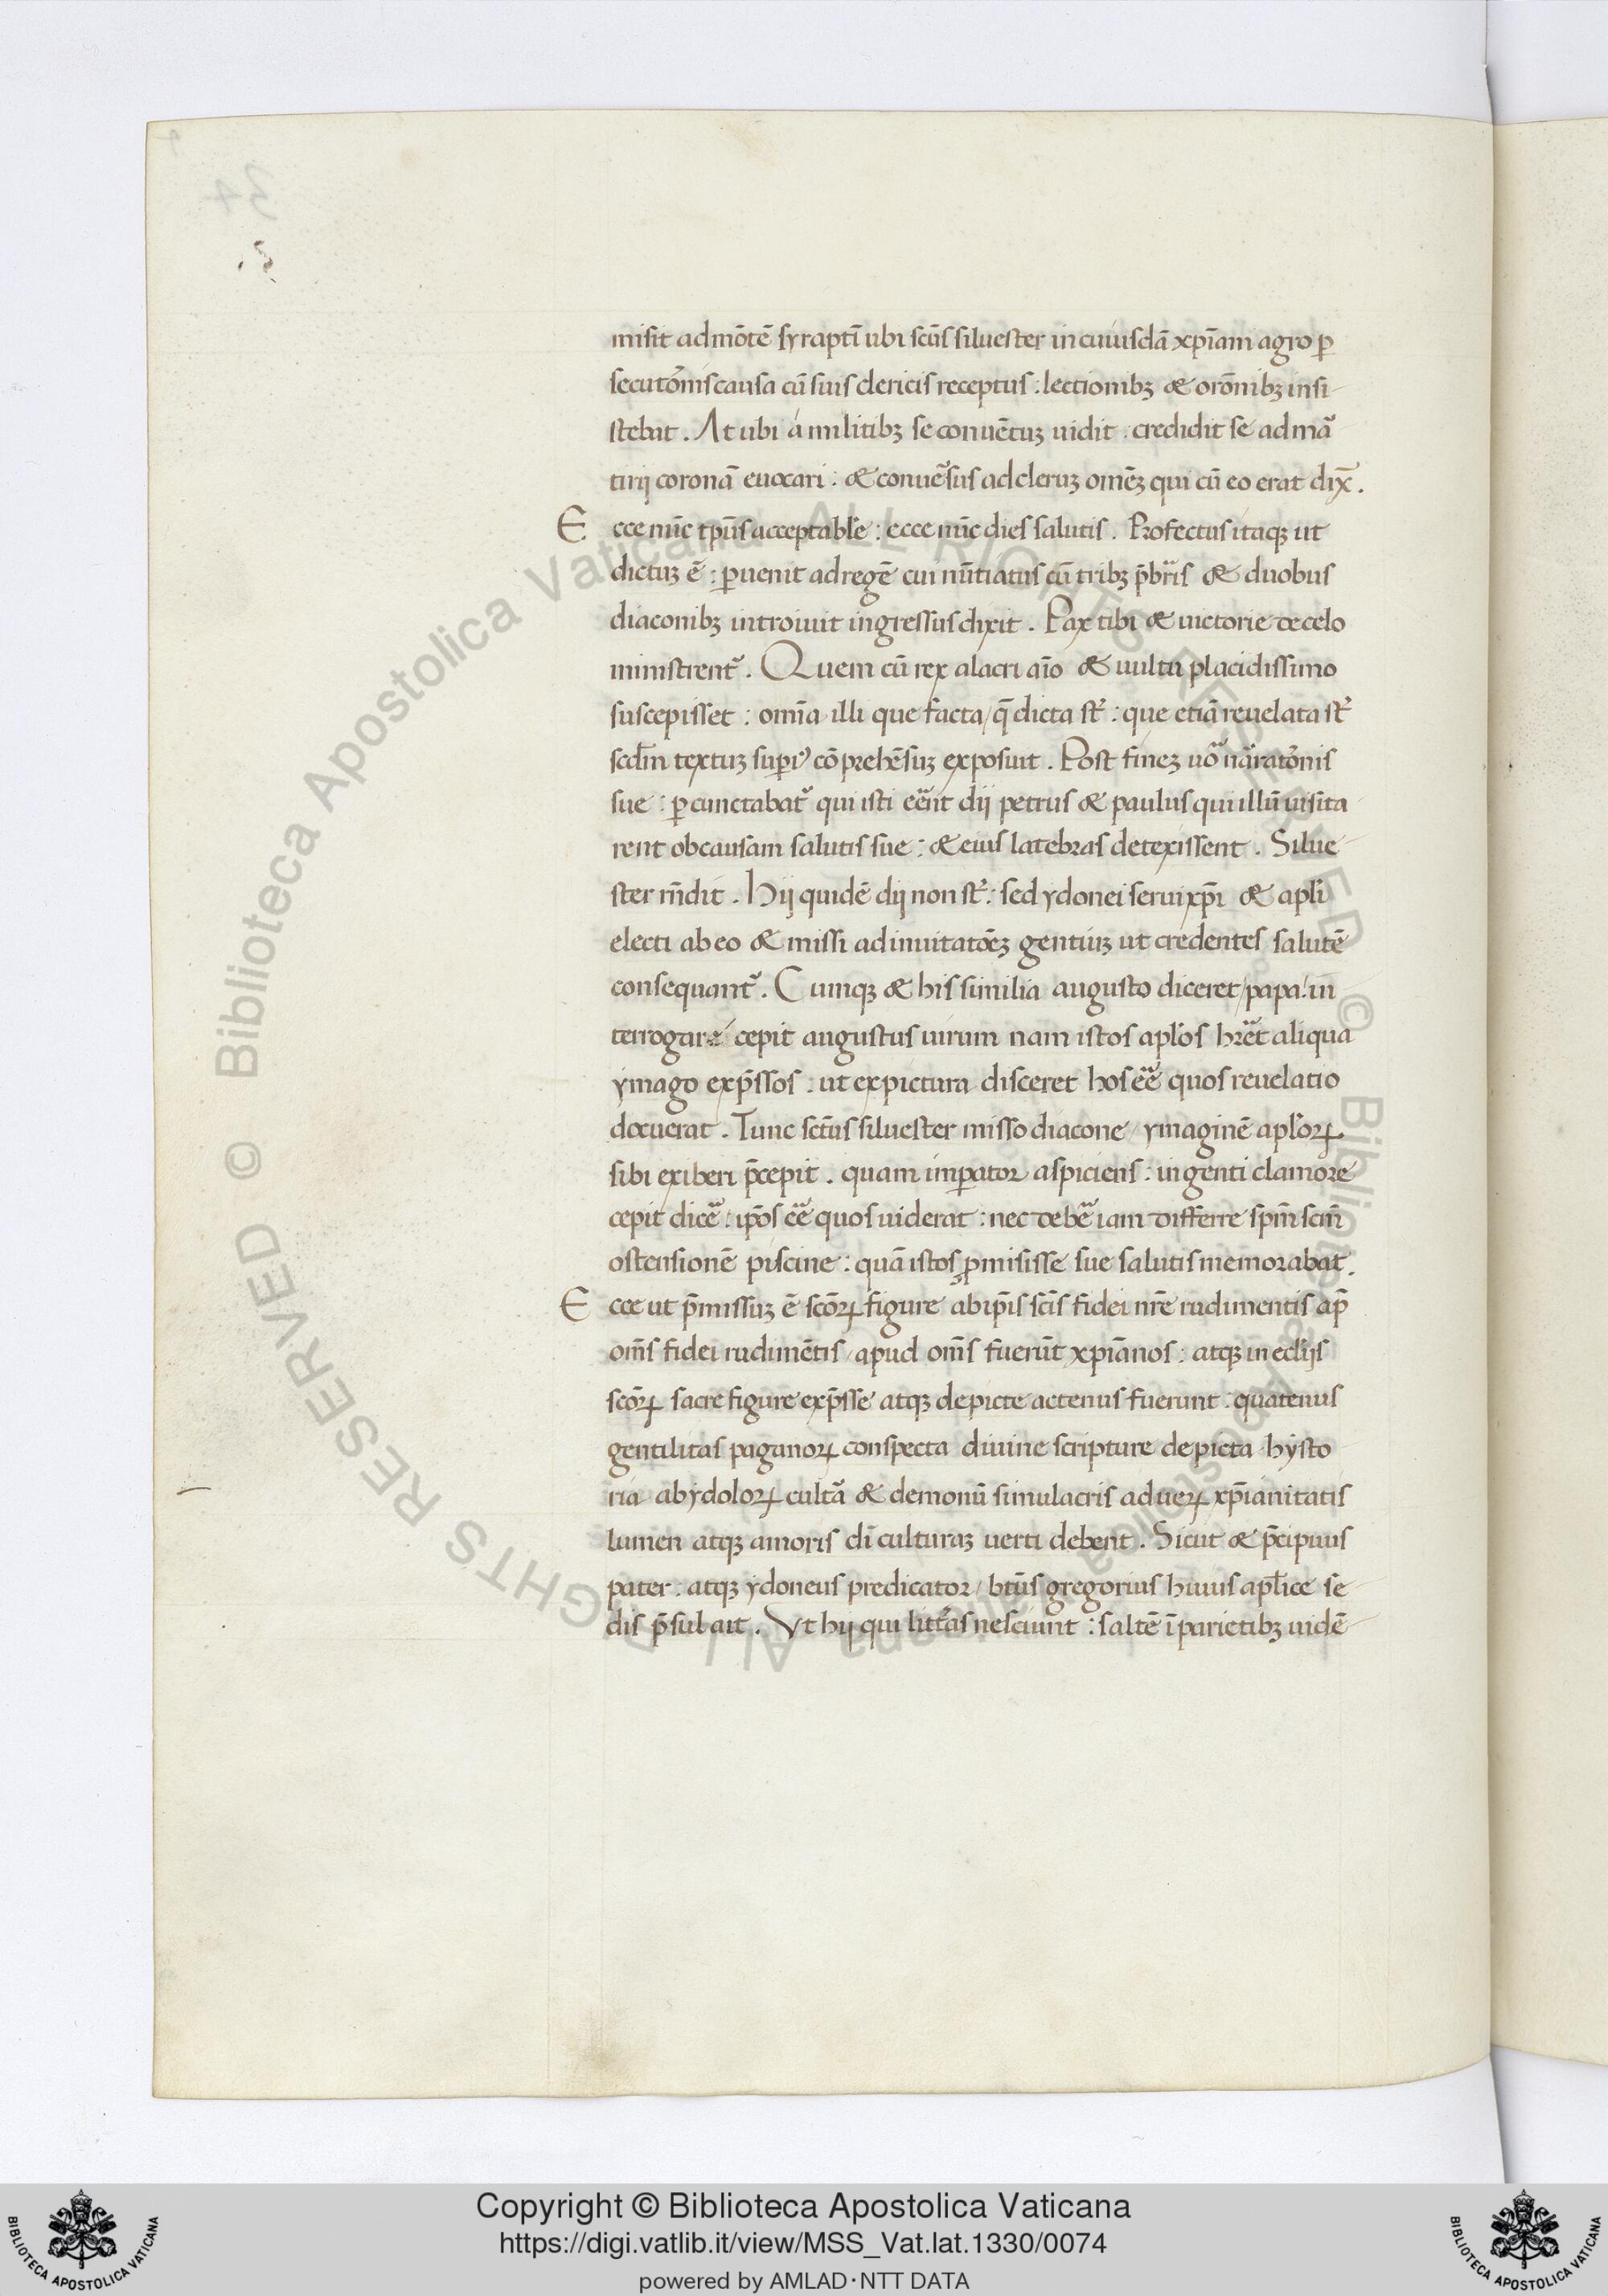 misit ad mōtē syraptī ubi scūs siluester in cuiusdā xp̄iani agro ꝑ
secutōis causa cū suis clericis receptus : lectionibꝫ & orōnibꝫ insi-
stebat . At ubi a militibꝫ se conuētuꝫ uidit . credidit se ad mar̄
tirij coronā euocari : & conuersus ad cleruꝫ omēꝫ qui cū eo erat dix̄ .
Ecce nūc tp̄us acceptabile : ecce nūc dies salutis . Profectus itaqꝫ ut
dictuꝫ ē : ꝑuenit ad regē cui nūtiatus cū tribꝫ p̄bris & duobus
diaconibꝫ introiuit ingressus dixit . Pax tibi & uictorie de celo
ministrent᷑ . Quem cū rex alacri aīo & uultu placidissimo
suscepisset : omīa illi que facta / q̄ dicta st᷑ : que etiā reuelata st᷑
scdm textuꝫ superiꝰ cōprehēsuꝫ exposuit . Post fineꝫ uō narratōnis
sue : ꝑcunctabat᷑ qui isti eēnt dij petrus & paulus qui illū uisita
rent ob causam salutis sue : & eius latebras detexissent . Silue-
ster rn̄dit . Hij quidē dij non st᷑ : sed ydonei serui xp̄i & apl̄i
electi ab eo & missi ad inuitatōeꝫ gentiuꝫ ut credentes salutē
consequant᷑ . Cumqꝫ & his similia augusto diceret / papa : in-
terrogare cepit augustus uirum nam istos apl̄os hr̄et aliqua
ymago exp̄ssos : ut ex pictura disceret hos eē quos reuelatio
docuerat . Tunc sctūs siluester misso diacone / ymaginē apl̄oꝝ
sibi exiberi p̄cepit . quam imꝑator aspiciens : ingenti clamore
cepit dicē : ip̄os eē quos uiderat : nec debē iam differre spm̄ scm̄
ostensionē piscine : quā istos ꝓmisisse sue salutis memorabat .
Ecce ut p̄missuꝫ ē scōꝝ figure ab ip̄is scīs fidei nr̄e rudimentis ap̄
om̄s fidei rudimētis / apud om̄s fuerūt xp̄ianos : atqꝫ in eclīis
scōꝝ sacre figure exp̄sse atqꝫ depicte actenus fuerunt : quatenus
gentilitas paganoꝝ conspecta diuine scripture depicta hysto-
ria ab ydoloꝝ cultā & demonū simulacris ad ueꝝ xp̄ianitatis
lumen atqꝫ amoris dī culturaꝫ uerti debent . Sicut & p̄cipuus
pater : atqꝫ ydoneus predicator / btūs gregorius huius apl̄ice se-
dis p̄sul ait . Vt hij qui litt̄as nesciunt : saltē ī parietibꝫ uidē-
© Biblioteca Apostolica Vaticana ALL RIGHTS RESERVED © Biblioteca Apostolica Vaticana ALL RIGHTS RESERVED
Copyright © Biblioteca Apostolica Vaticana
https://digi.vatlib.it/view/MSS_Vat.lat.1330/0074
powered by AMLAD·NTT DATA
BIBLIOTECA APOSTOLICA VATICANA
BIBLIOTECA APOSTOLICA VATICANA